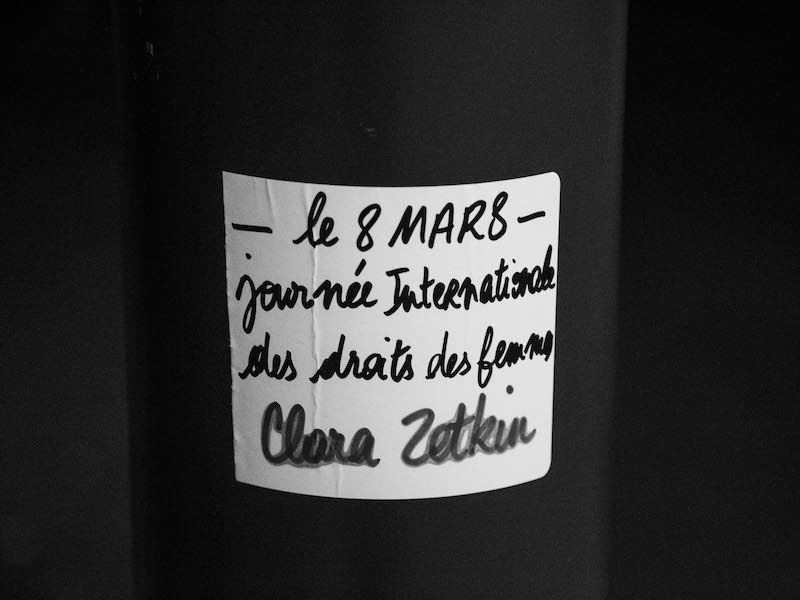 — le 8 MARS —
journée Internationale
des droits des femmes
Clara Zetkin